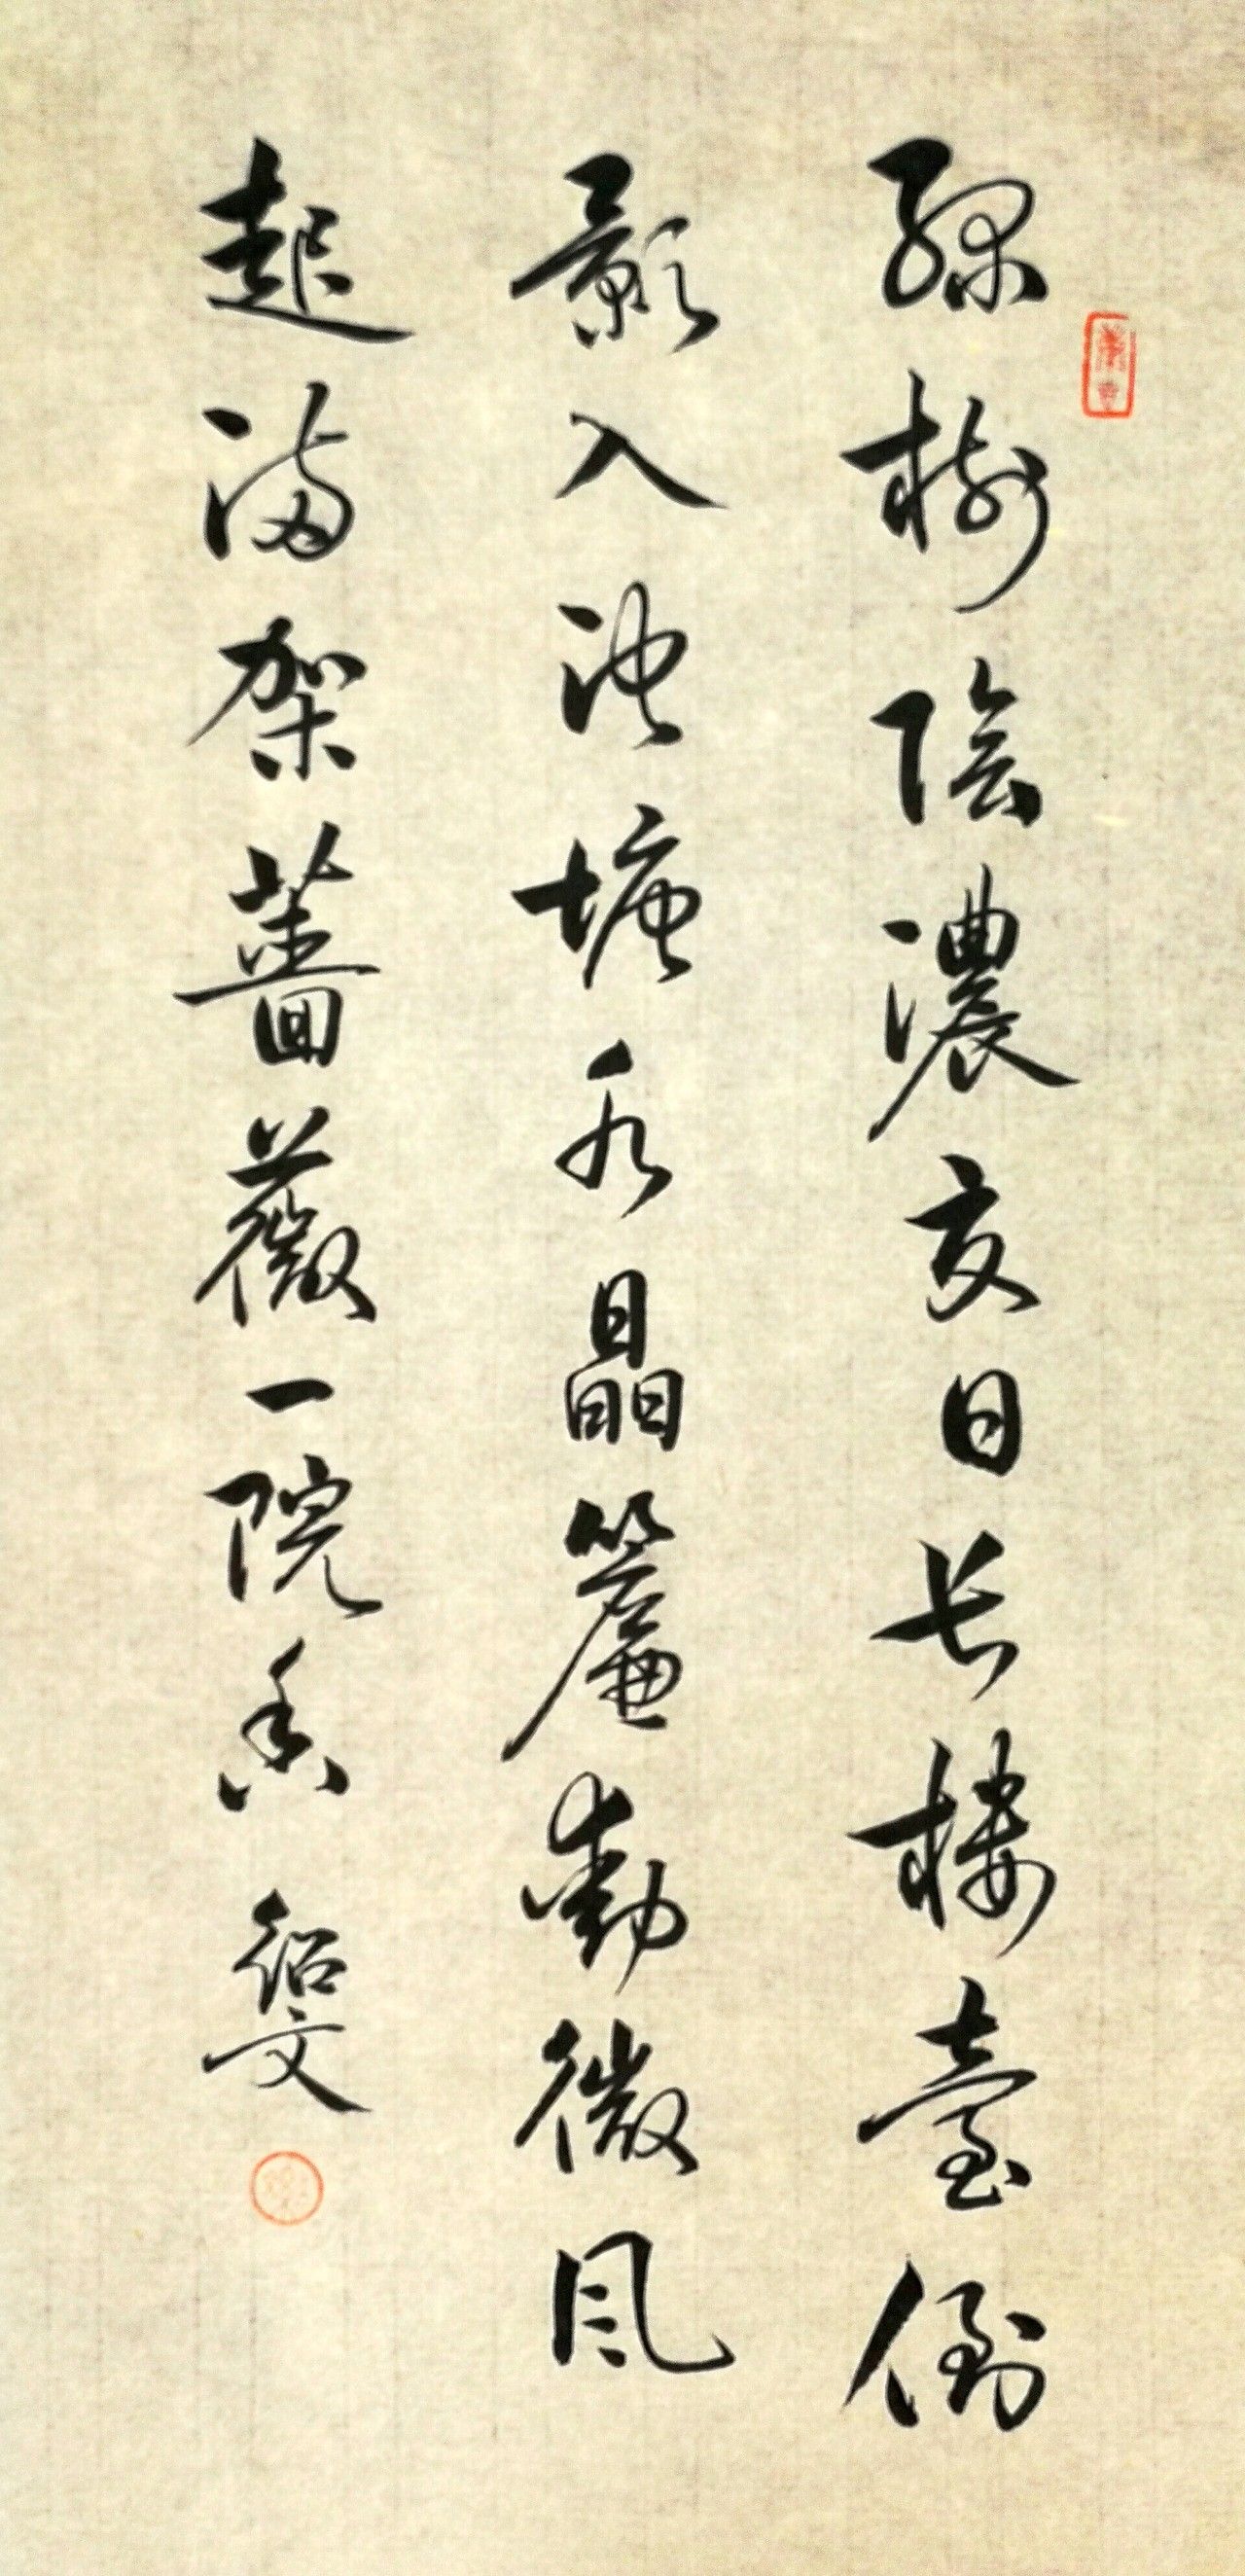 綠樹陰濃夏日長樓臺倒
影入池塘水晶簾動微風
起滿架薔薇一院香 紹文